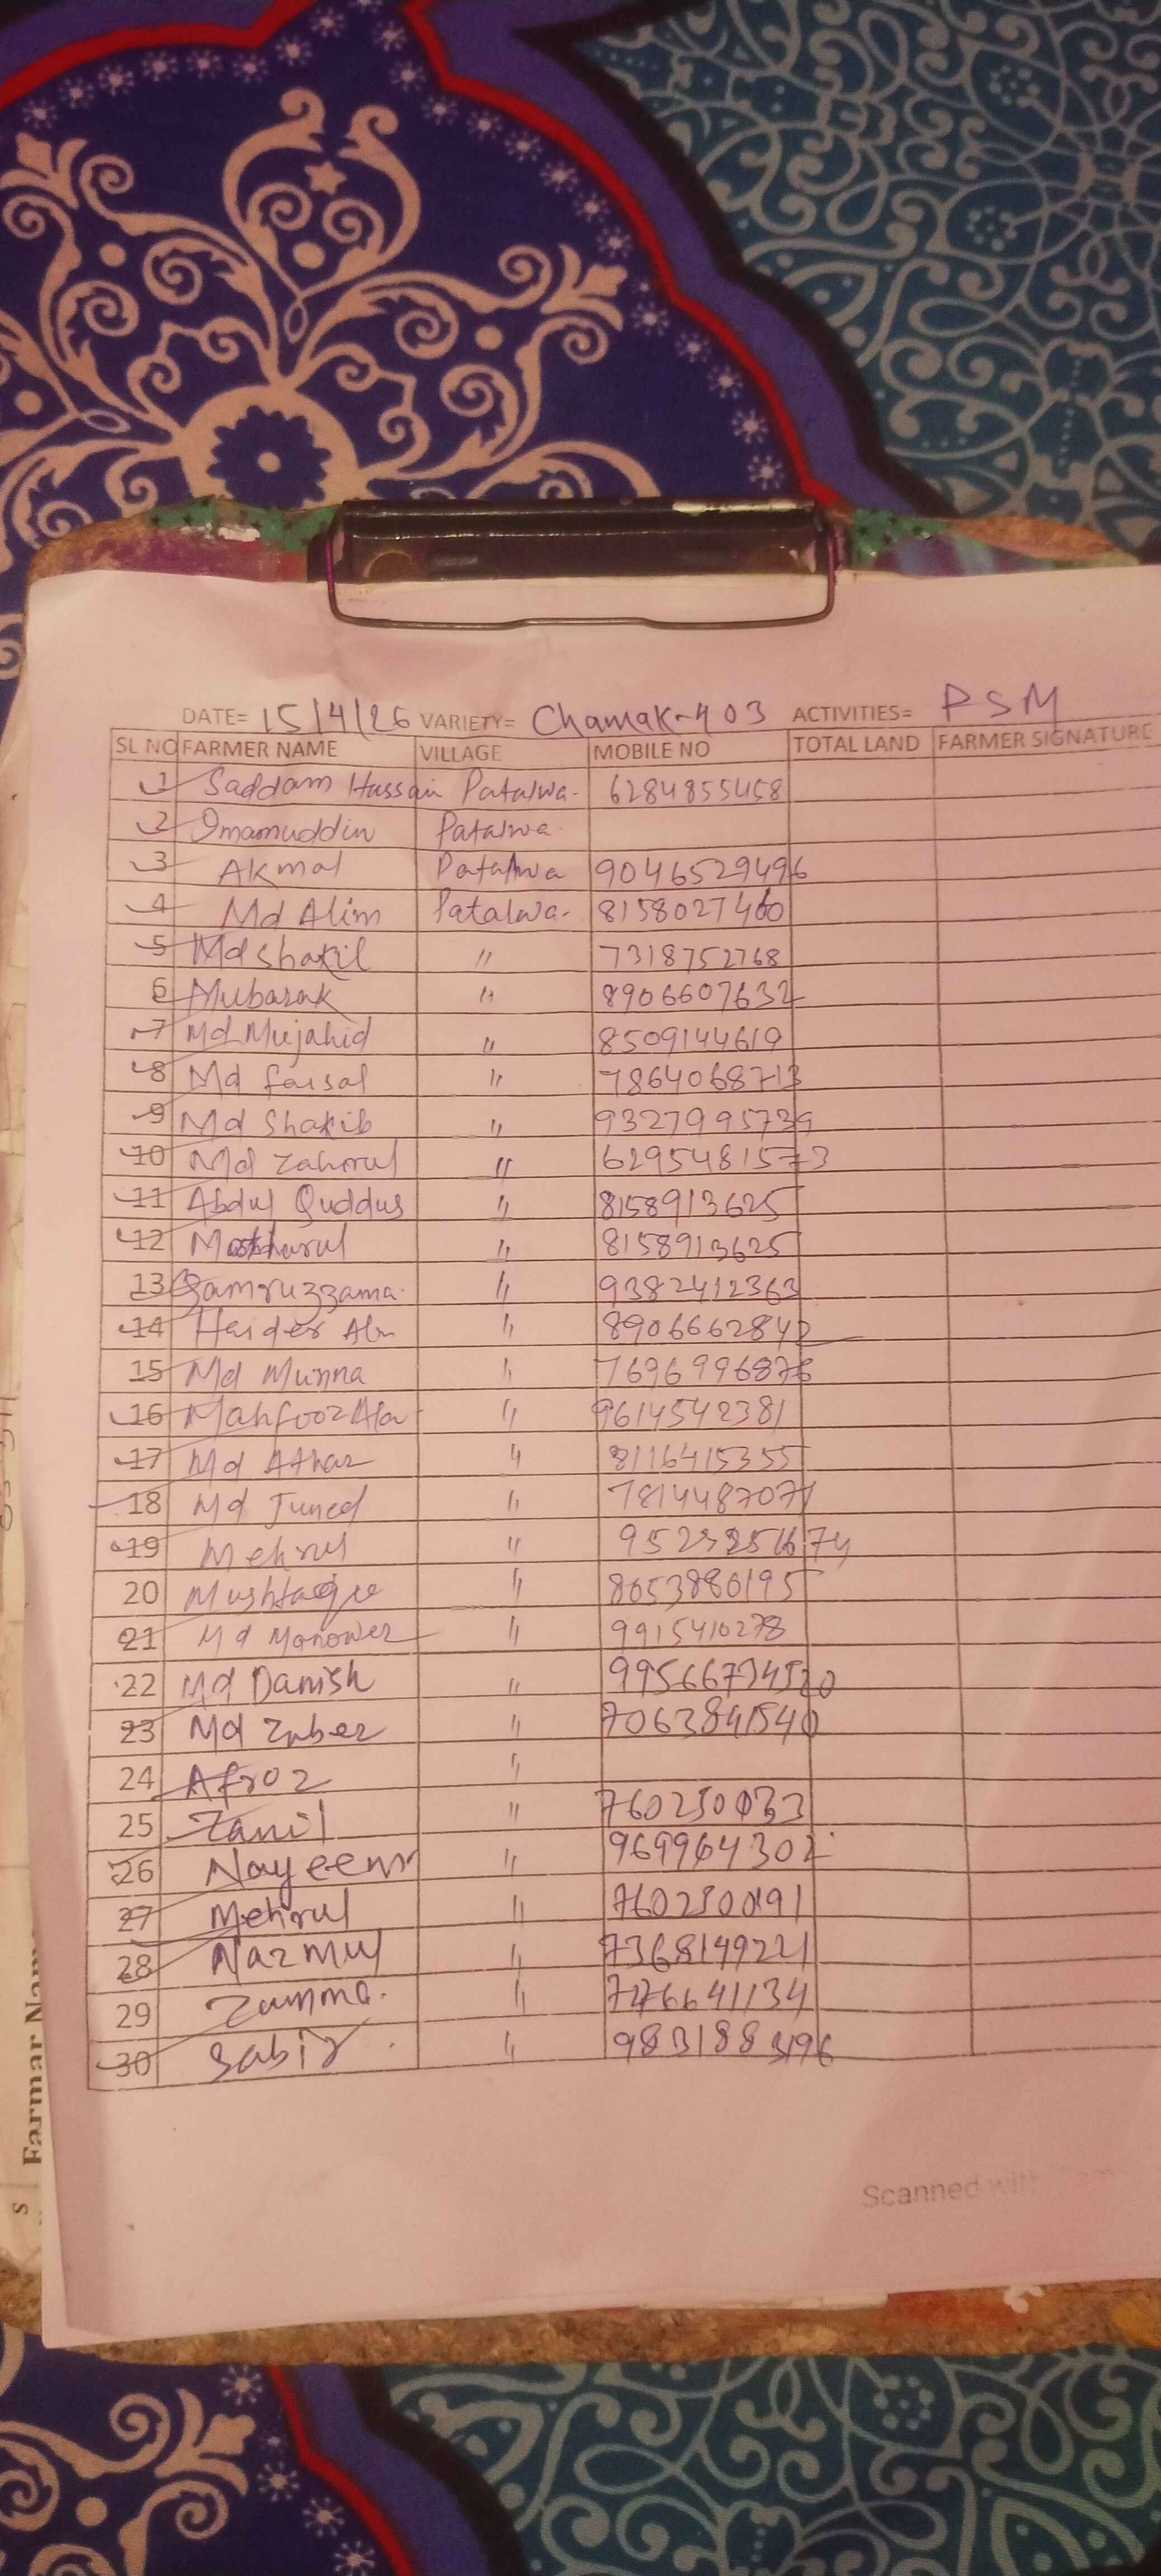 DATE= 15/4/26 VARIETY= Chamak-403 ACTIVITIES= PSM
SL NO FARMER NAME VILLAGE MOBILE NO TOTAL LAND FARMER SIGNATURE
1 Saddam Hussain Patalwa. 6284855458
2 Imamuddin Patalwa.
3 Akmal Patalwa 9046529496
4 Md Alim Patalwa. 8158027460
5 Md Shakil " 7318752768
6 Mubarak " 8906607632
7 Md Mujahid " 8509144619
8 Md faisal " 7864068713
9 Md Shakib " 9327995739
10 Md Zahrul " 6295481573
11 Abdul Quddus " 8158913625
12 " 8158913625
13 Qamruzzama. " 9382412363
14 Haider Alm " 8906662842
15 Md Munna " 7696996876
16 Mahfooz Ala " 9614542381
17 Md Athar " 8116415355
18 Md Juned " 7814487071
19 Mehrul "
20 Mushtaque " 8653880195
21 Md Manower " 9915410278
22 Md Danish "
23 Md Zuber " 7063841540
24 Afroz "
25 Zamil " 760250033
26 Nayeem " 969964302
27 Mehrul "
28 Nazmul " 7368149221
29 Zamma. "
30 Sabir " 9831883196
Scanned with
Farmar Name
s